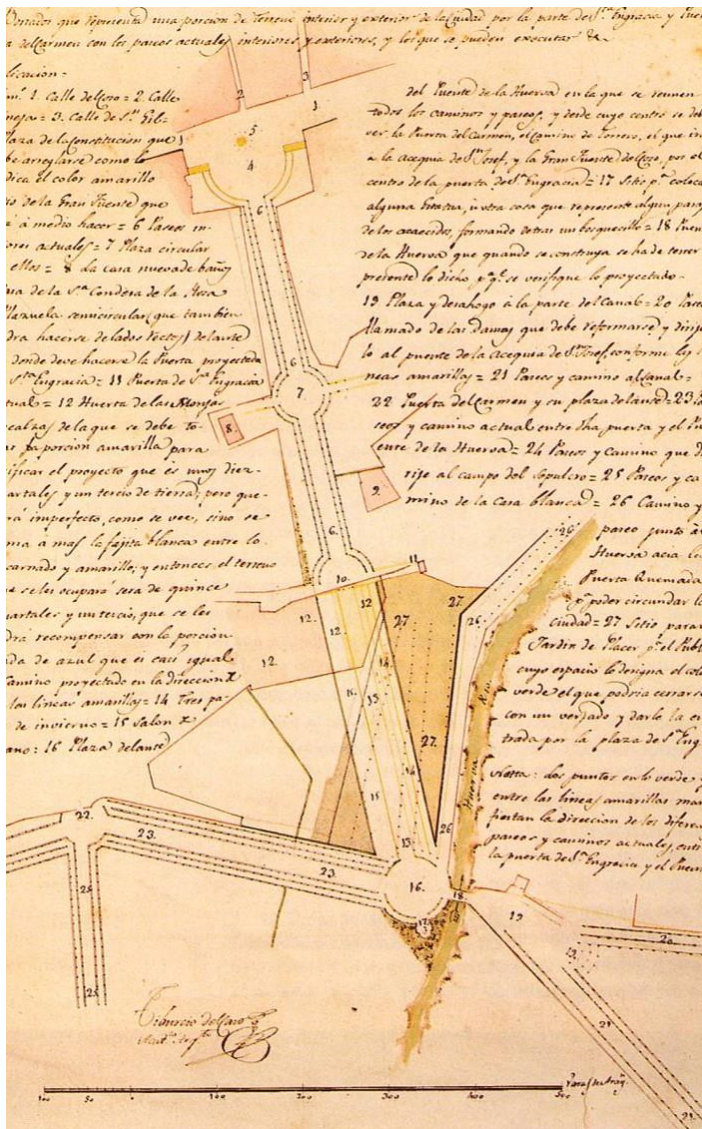 que representa una porcion de Terreno interior y exterior de la Ciudad por la parte de Sta. Engracia y Puer
del Carmen con los paseos actuales interiores y exteriores, y los que se pueden executar &a
licacion =
1. Calle del Coso = 2. Calle
= 3. Calle de Sn. Gil =
Plaza de la Constitucion que
be arreglarse como lo
dica el color amarillo
de la Gran Fuente que
à medio hacer = 6 Paseos in-
actuales = 7 Plaza circular
ellos = 8 La casa nueva de baños
de la Sra. Condesa de la
semicircular (que tambien
dra hacerse de lados rectos) delante
donde deve hacerse la Puerta proyectada
Sta. Engracia = 11 Puerta de Sta. Engracia
tual = 12 Huerta de las Monjas
calzas de la que se debe to-
la porcion amarilla para
ificar el proyecto que es unos diez
artales y un tercio de tierra; pero que-
rá imperfecto, como se vee, sino se
ma à mas la fajita blanca entre lo
encarnado y amarillo; y entonces el terreno
que se les ocupará sera de quince
uartales y un tercio, que se les
drá recompensar con la porcion
da de azul que es casi igual
Camino proyectado en la direccion de
las lineas amarillas = 14 Tres pa-
de invierno = 15 Salon de
ano: 16 Plaza delante
del Puente de la Huerva en la que se reunen
todos los caminos y paseos, y desde cuyo centro se deb
ver la Puerta del Carmen, el Camino de Torrero, el que
a la acequia de Sn. Josef, y la Gran Fuente del Coso, por el
centro de la puerta de Sta. Engracia = 17 Sitio pa. coloca
alguna Estatua, ù otra cosa que represente algun
de los acaecidos, formando detras un bosquecillo = 18 Puen
de la Huerva que quando se construya se ha de tener
presente lo dicho pa. qe. se verifique lo proyectado =
19 Plaza y desahogo à la parte del Canal = 20 Paseo
llamado de las damas que debe reformarse y dirijir
lo al puente de la acequia de Sn. Josef conforme las li
neas amarillas = 21 Paseos y camino al Canal =
22 Puerta del Carmen y su plaza delante = 23 Pa
seos y camino actual entre dha puerta y el Pu
ente de la Huerva = 24 Paseos y Camino que di
rije al campo del Sepulcro = 25 Paseos y ca
mino de la Casa blanca = 26 Camino y
paseo junto à
Huerva acia la
Puerta Quemada
pa. poder circundar la
ciudad = 27 Sitio para
Jardin de Placer pa. el Publi
cuyo espacio lo designa el color
verde el que podria cerrarse
con un verjado y darle la en
trada por la plaza de Sta. Eng
Notta: los puntos en lo verde y
entre las lineas amarillas mani
fiestan la direccion de los diferen
paseos y caminos actuales, entre
la puerta de Sta. Engracia y el Puen
3
2
1.
5
4
6
6
7
8.
9.
6.
10.
11.
12.
12.
12
12.
27
27.
27.
26
26.
26
14
13
14
13.
15.
15
Rio
Huerva
22.
23.
23
24
25
16.
17
18
19
20
21
21.
Tiburcio del Caso
100 50 0 100 200 300 400 500